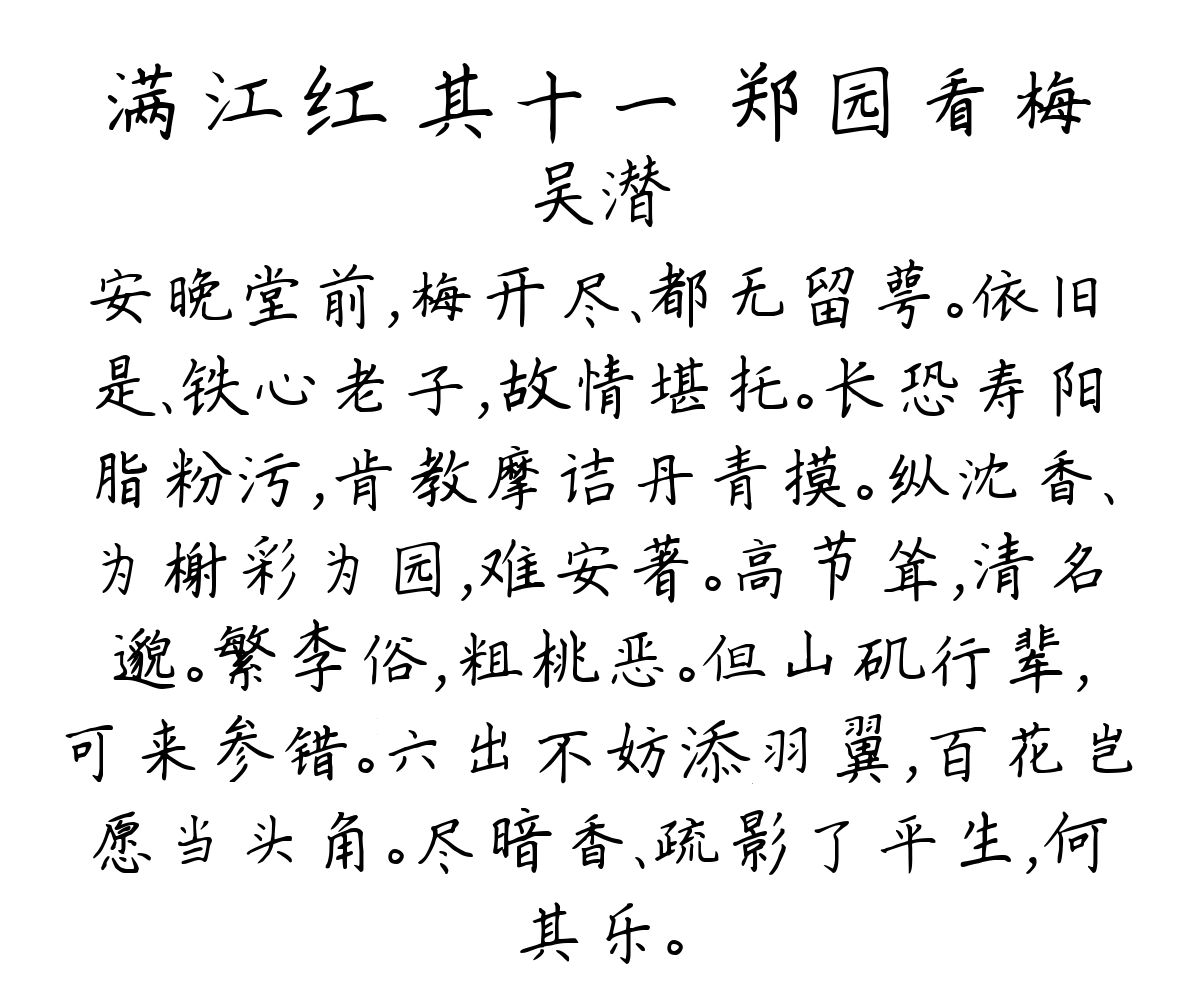 满江红 其十一 郑园看梅
吴潜
安晚堂前,梅开尽、都无留萼。依旧
是、铁心老子,故情堪托。长恐寿阳
脂粉污,肯教摩诘丹青摸。纵沈香、
为榭彩为园,难安著。高节耸,清名
邈。繁李俗,粗桃恶。但山矾行辈,
可来参错。六出不妨添羽翼,百花岂
愿当头角。尽暗香、疏影了平生,何
其乐。